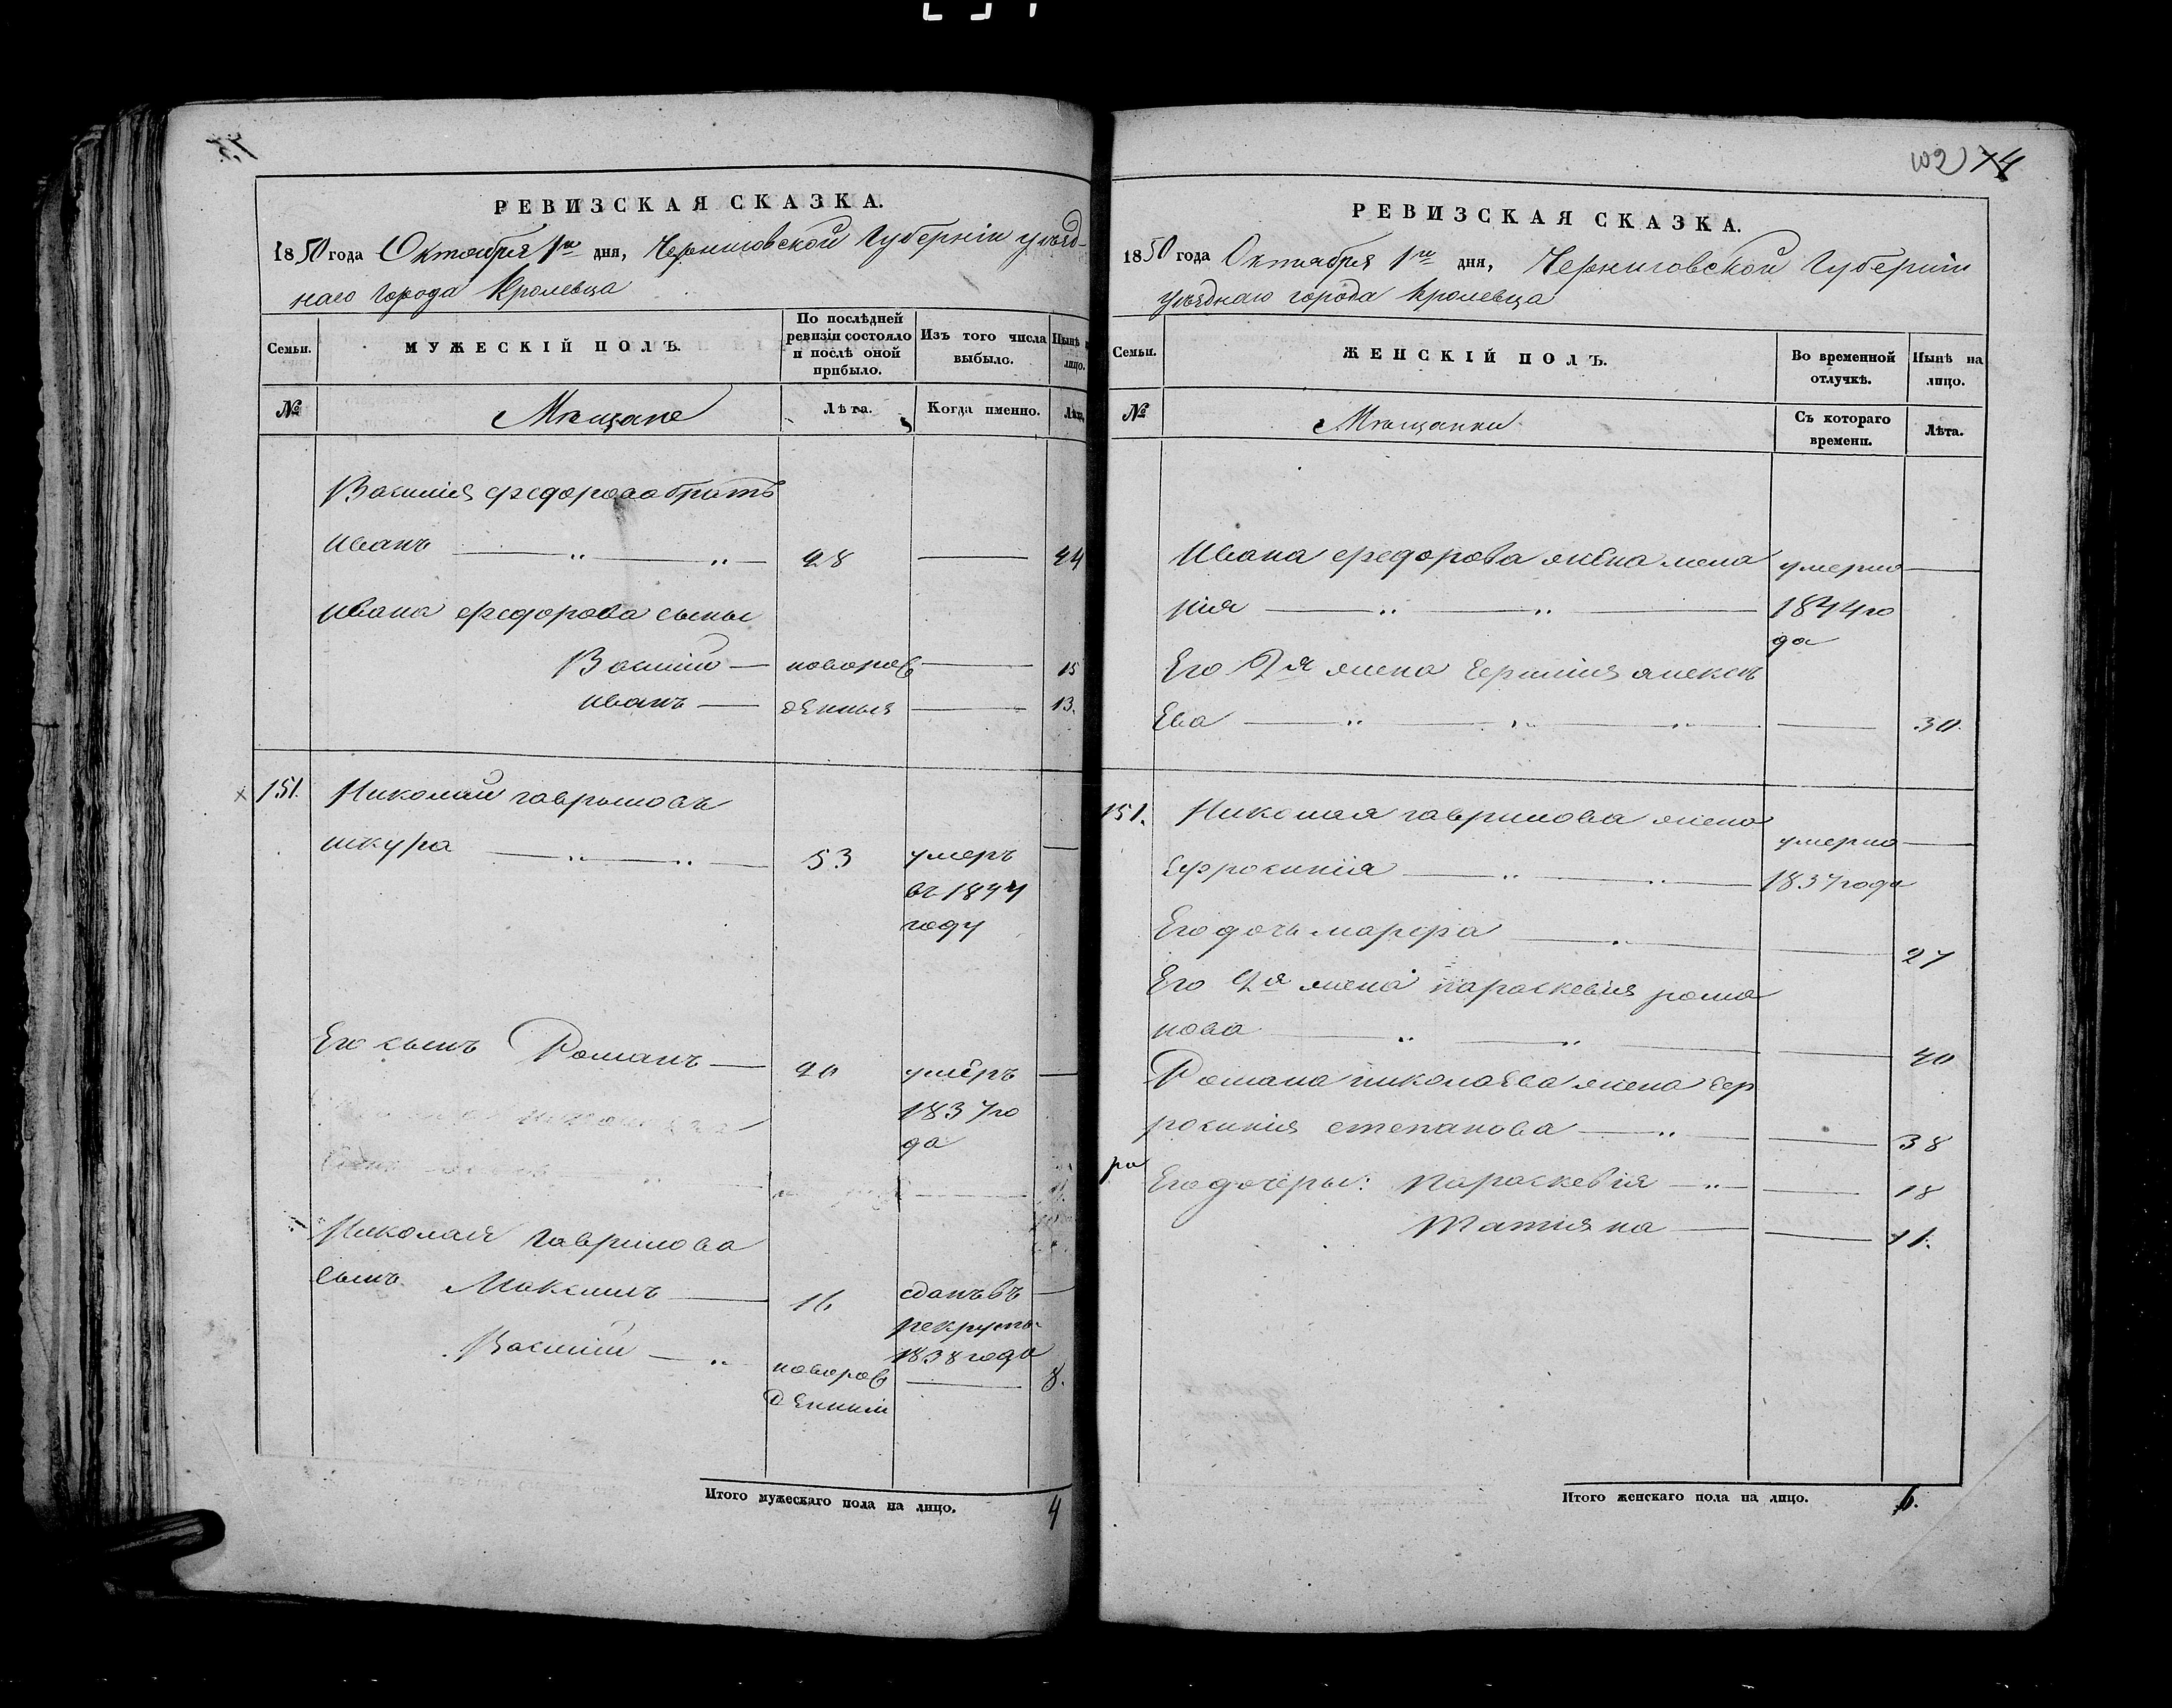 РЕВИЗСКАЯ СКАЗКА.
1850 года Октября 1го дня, Черниговской Губерніи уѣзд-
наго города Кролевца
Семьи.
МУЖЕСКІЙ ПОЛЪ.
По послѣдней ревизіи состояло и послѣ оной прибыло.
Изъ того числа выбыло.
Нынѣ на лицо.
№
Мѣщане
Лѣта.
Когда именно.
Лѣта.
Василія Федорова братъ
Иванъ — 28 — 44
Ивана Федорова сыны
Василій — новорож — 15
Иванъ — денныя — 13.
151. Николай Гавриловъ
Шкура — 53 умеръ —
въ 1844
году
Его сынъ Романъ — 20 умеръ —
1837 го
да
Николая Гаврилова
сынъ Максимъ — 16 сданъ въ —
рекруты
1838 года
Василій — новорож — 8.
денный
Итого мужескаго пола на лицо. 4
102 74
РЕВИЗСКАЯ СКАЗКА.
1850 года Октября 1го дня, Черниговской Губерніи
уѣзднаго города Кролевца
Семьи.
ЖЕНСКІЙ ПОЛЪ.
Во временной отлучкѣ.
Нынѣ на лицо.
№
Мѣщанки
Съ котораго времени.
Лѣта.
Ивана Федорова жена Мела умерла —
нія — 1844 го
да
Его 2я жена Алексѣ
ева — 30.
151. Николая Гаврилова жена умерла —
Ефросинія — 1837 года
Его дочь Марфа — 27
Его 2я жена Параскевія Рома
нова — 40
Романа Николаева жена Еф
росинія Степанова — 38
Его дочеры: Параскевія — 18
Татіяна — 11.
Итого женскаго пола на лицо. 6.